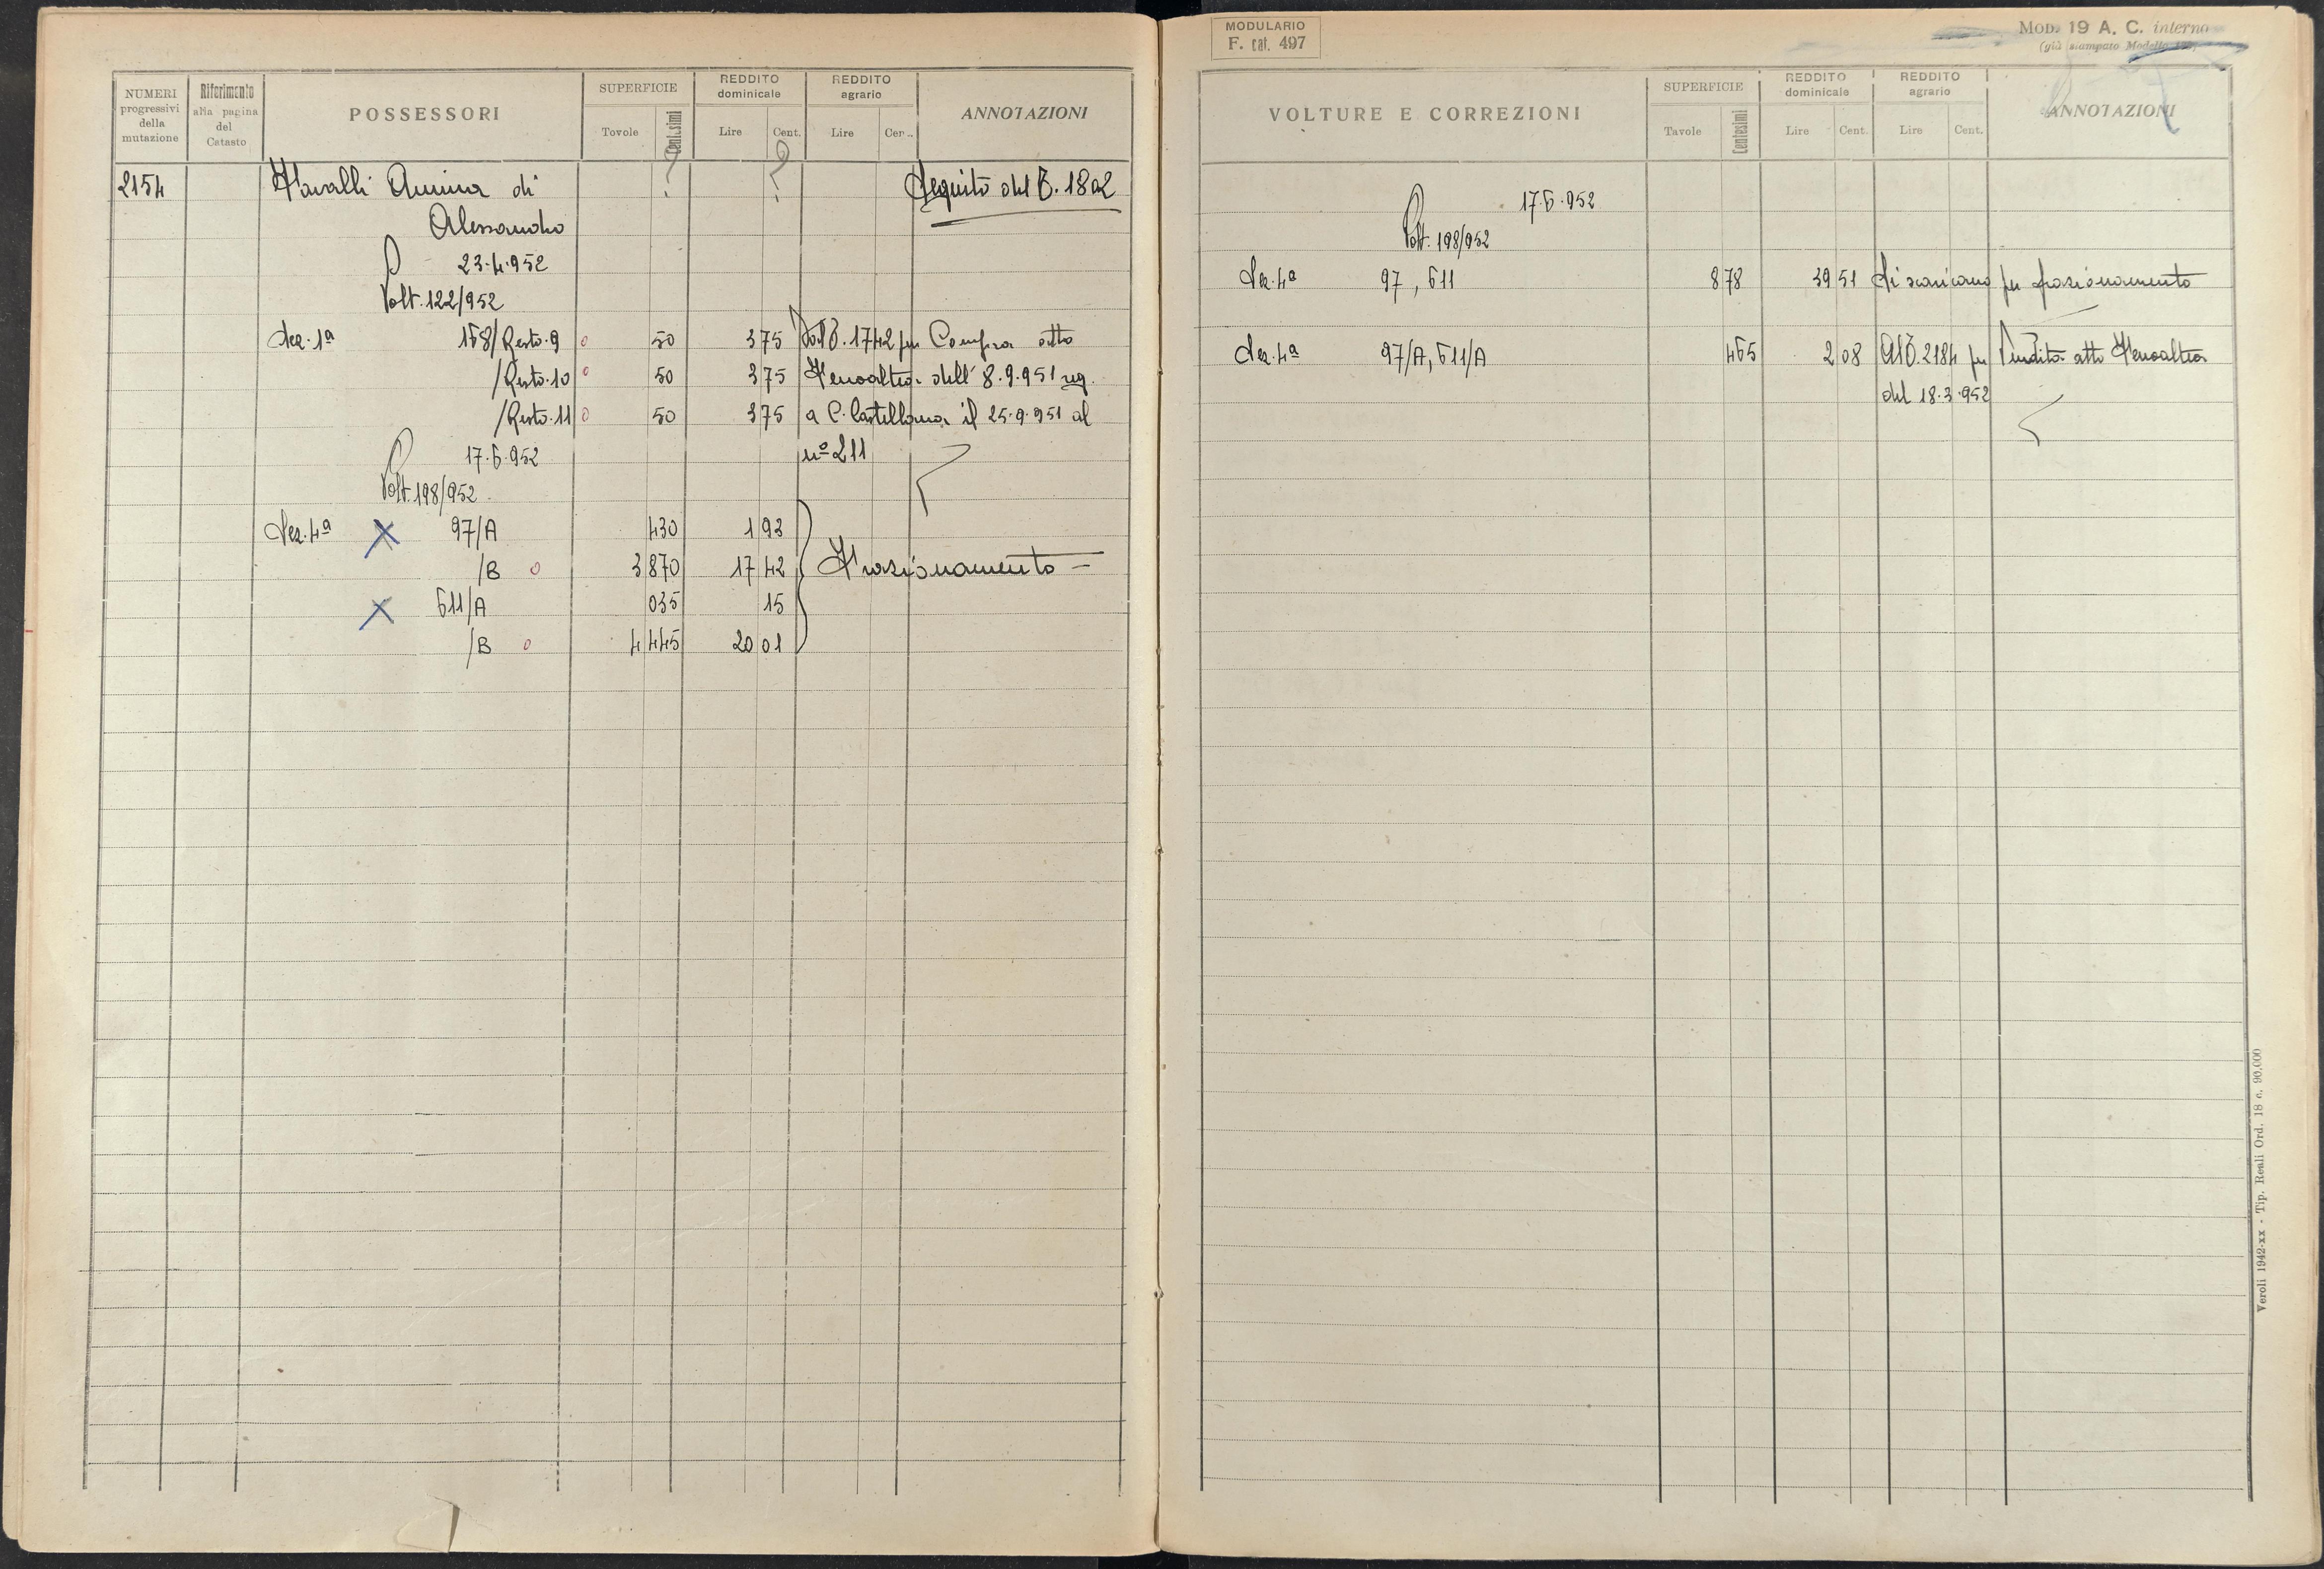 NUMERI progressivi della mutazione
Riferimento alla pagina del Catasto
POSSESSORI
SUPERFICIE
Tavole
Centesimi
REDDITO dominicale
Lire
Cent.
REDDITO agrario
Lire
Cent.
ANNOTAZIONI
2154
Favalli Annina di
Seguito del P. 1802
Alessandro
23.4.952
Volt. 122/952
Sez. 1ª 168/Resto.9 0 50 3 75 Dal P. 1742 per Compra atto
/Resto.10 0 50 3 75 Fenoaltea dell' 8.9.951 reg.
/Resto.11 0 50 3 75 a C. Castellana il 25.9.951 al
nº 211
17.6.952
Volt. 198/952
Sez. 4ª X 97/A 430 1 93
/B 0 3 870 17 42 Frazionamento
X 611/A 035 15
/B 0 4 445 20 01
MODULARIO
F. cat. 497
MOD. 19 A. C. interno
(già stampato Modello
VOLTURE E CORREZIONI
SUPERFICIE
Tavole
Centesimi
REDDITO dominicale
Lire
Cent.
REDDITO agrario
Lire
Cent.
ANNOTAZIONI
17.6.952
Volt. 198/952
Sez. 4ª 97, 611 8 78 39 51 Si scaricano per frazionamento
Sez. 4ª 97/A, 611/A 465 2 08 Al P. 2184 per Vendita atto Fenoaltea
del 18.3.952
Veroli 1942-XX - Tip. Reali Ord. 18 c. 90,000